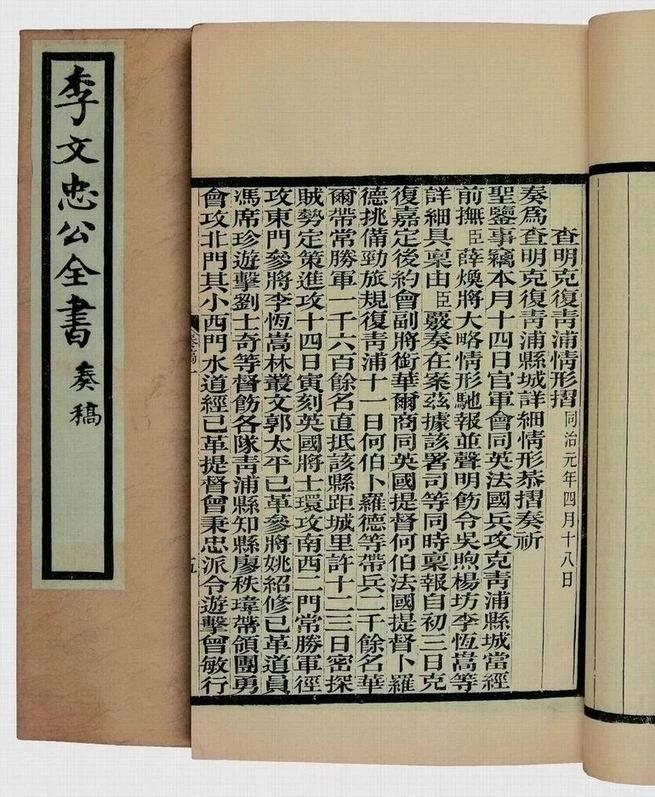 李文忠公全書 奏稿
查明克復青浦情形摺 同治元年四月十八日
奏為查明克復青浦縣城詳細情形恭摺奏祈
聖鑒事竊本月十四日官軍會同英法國兵攻克青浦縣城當經
前撫臣薛煥將大略情形馳報並聲明飭令吳煦楊坊李恆嵩等
詳細具稟由臣覈奏在案茲據該署司等同時稟報自初三日克
復嘉定後約會副將銜華爾商同英國提督何伯法國提督卜羅
德挑備勁旅規復青浦十一日何伯卜羅德等帶兵二千餘名華
爾帶常勝軍一千六百餘名直抵該縣距城里許十二三日密探
賊勢定策進攻十四日寅刻英國將士環攻南西二門常勝軍徑
攻東門參將李恆嵩林叢文郭太平已革參將姚紹修已革道員
馮席珍遊擊劉士奇等督飭各隊青浦縣知縣廖秩瑋帶領團勇
會攻北門其小西門水道經已革提督曾秉忠派令遊擊曾敏行
五